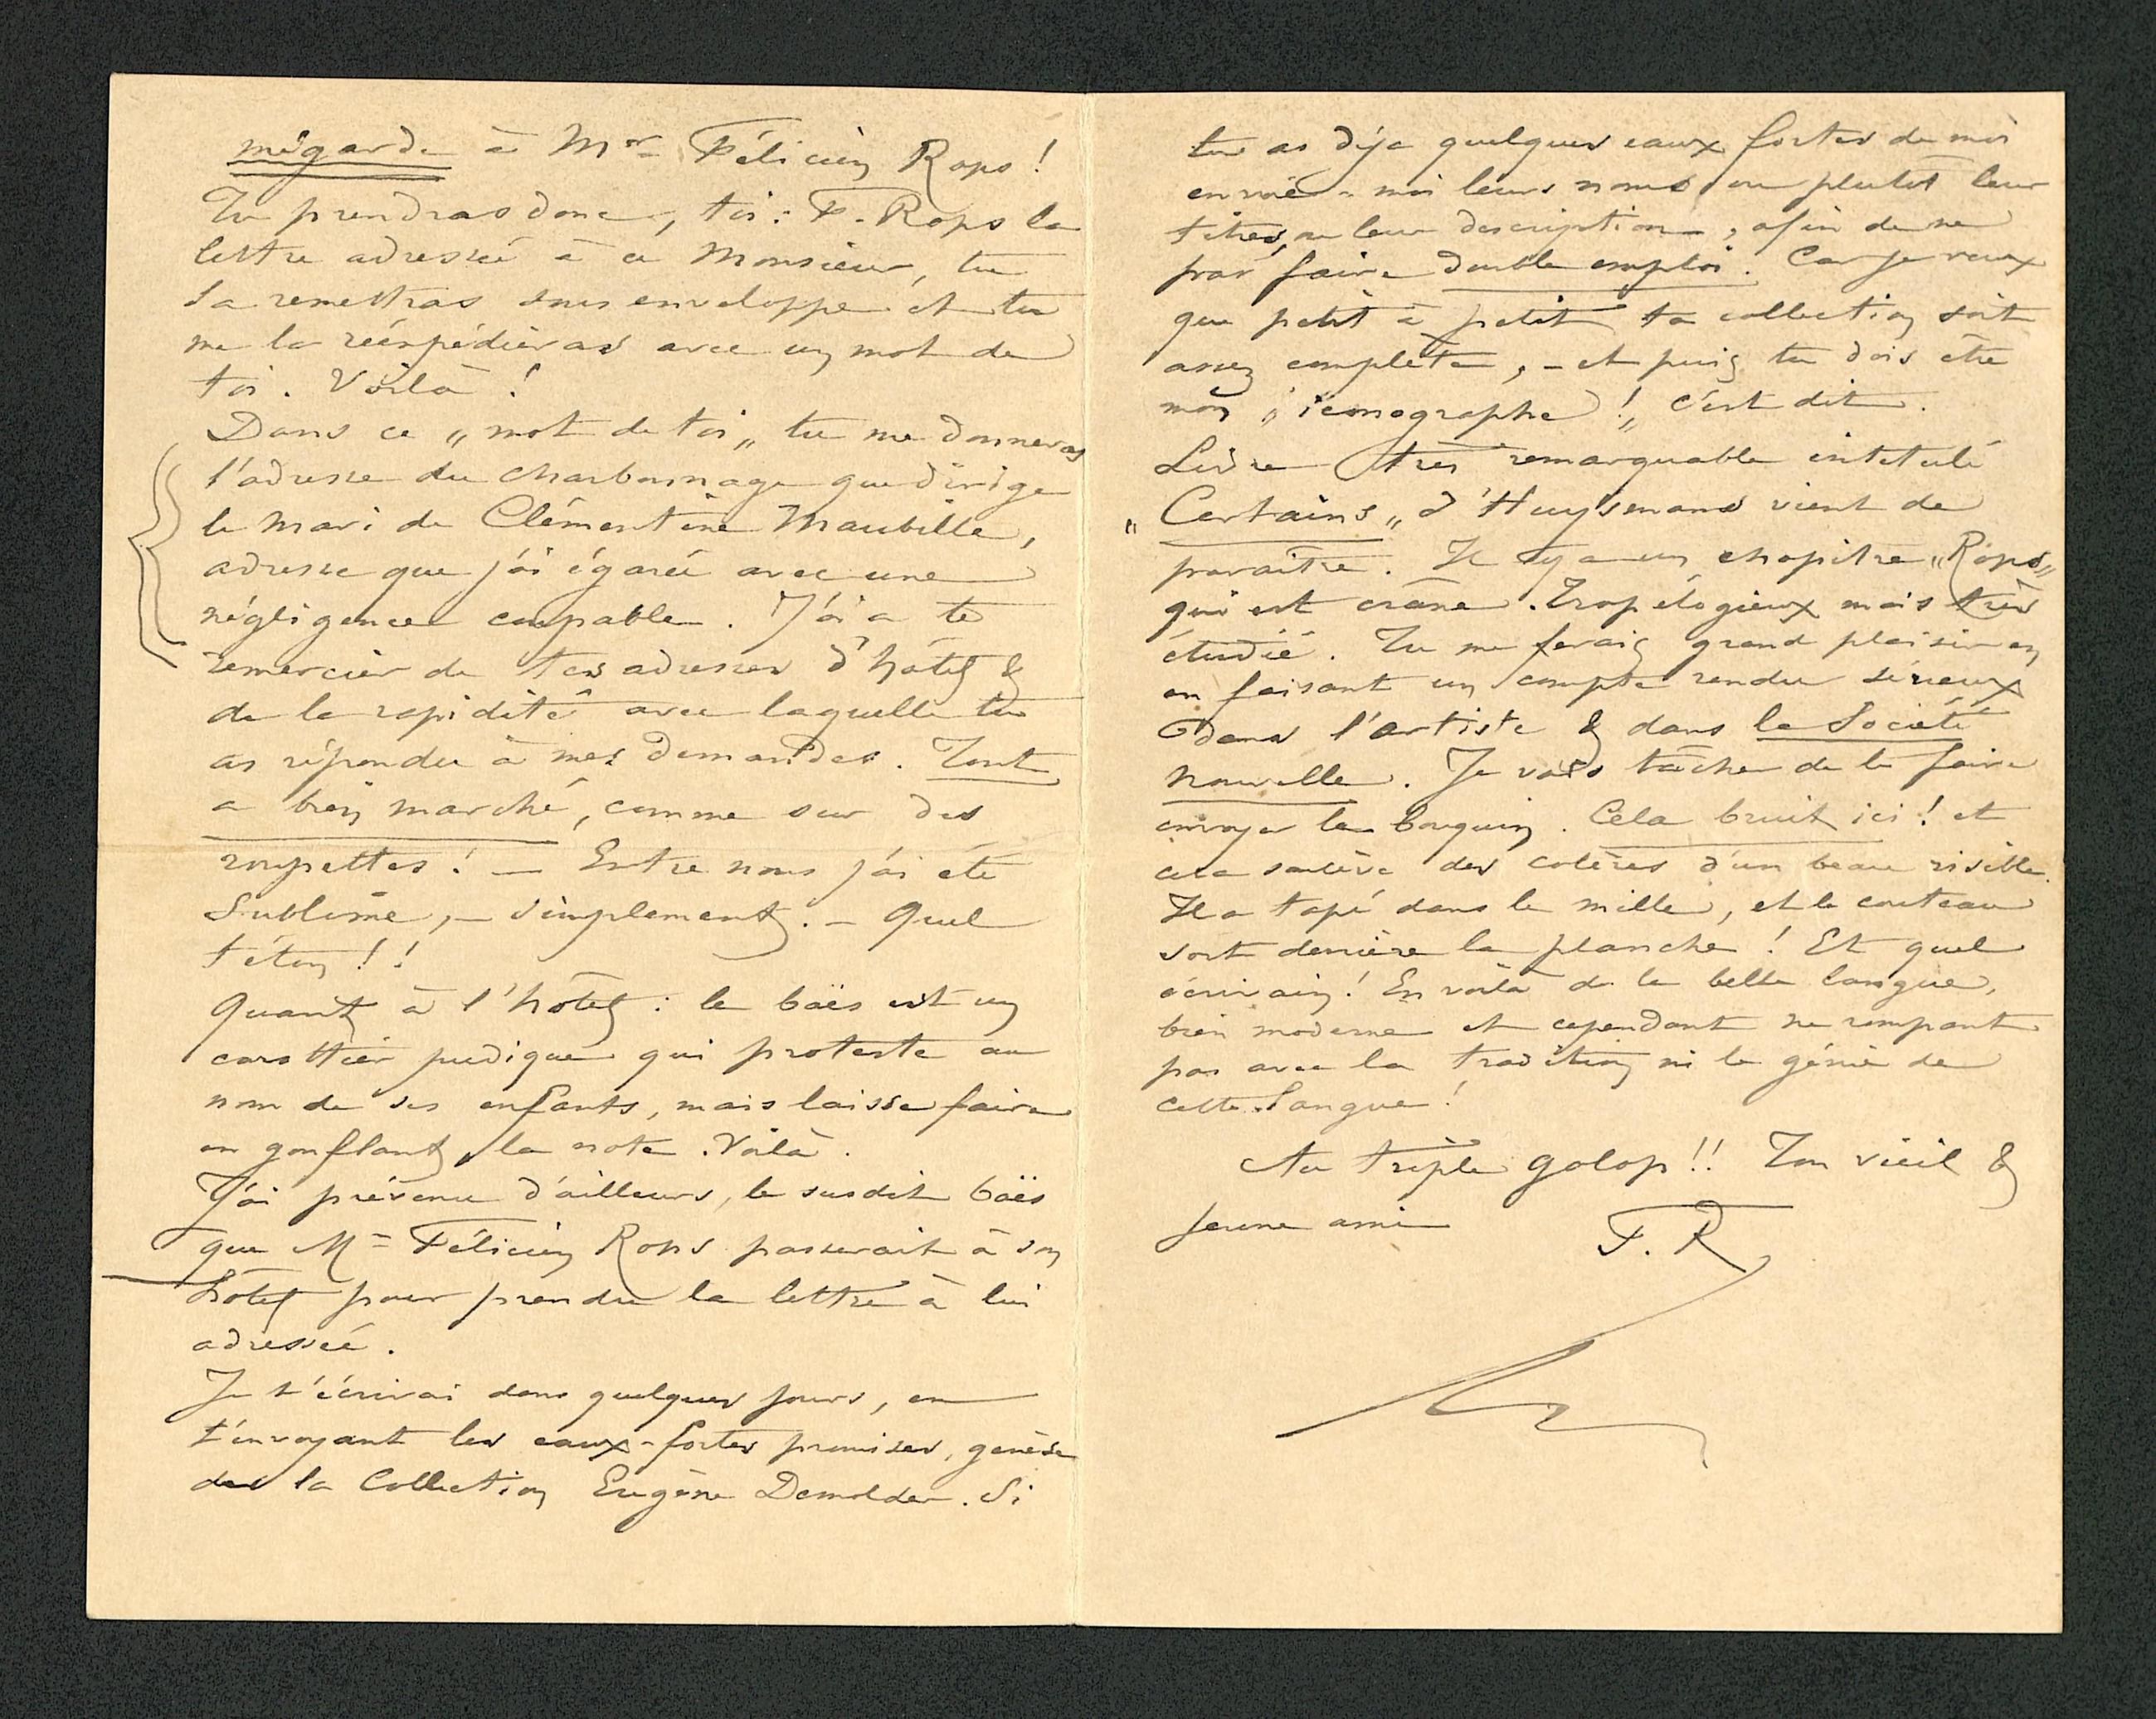 mégarde à Mr Félicien Rops !
Tu prendras donc, toi : F. Rops la
lettre adressée à ce Monsieur, tu
la remettras sous enveloppe et tu
me la réexpédieras avec un mot de
toi. Voilà !
Dans ce „mot de toi„ tu me donneras
l'adresse du charbonnage que dirige
le mari de Clémentine Maubille,
adresse que j'ai égarée avec une
négligence coupable. J'ai a te
remercier de tes adresses d'hôtel &
de la rapidité avec laquelle tu
as répondu à mes demandes. Tout
a bien marché, comme sur des
roupettes ! — Entre nous j'ai été
Sublime, – simplement. – Quel
téton !!
Quant à l'hôtel : le baës est un
carottier pudique qui proteste au
nom de ses enfants, mais laisse faire
en gonflant la note. Voilà.
J'ai prévenu d'ailleurs, le susdit baës
que Mr Félicien Rops passerait à son
hôtel pour prendre la lettre à lui
adressée.
Je t'écrirai dans quelques jours, en
t'envoyant les eaux-fortes promises, genèse
de la Collection Eugène Demolder. Si
tu as déja quelques eaux fortes de moi
envoie-moi leurs noms ou plutôt leur
titres, ou leur description, afin de ne
pas faire double emploi. Car je veux
que petit à petit ta collection soit
assez complète, – et puis tu dois être
mon „iconographe !„ c'est dit.
Livre très remarquable intitulé
„Certains„ d'Huysmans vient de
paraître. Il y a un chapitre „Rops„
qui est crâne. Trop élogieux mais très
étudié. Tu me ferais grand plaisir en
en faisant un compte rendu sérieux
dans l'artiste & dans la Société
nouvelle. Je vais tâcher de te faire
envoyer le bouquin. Cela bruit ici ! et
cela soulève des colères d'un beau risible.
Il a tapé dans le mille, et le couteau
sort derrière la planche ! Et quel
écrivain ! En voilà de la belle langue,
bien moderne et cependant ne rompant
pas avec la tradition ni le génie de
cette langue !
Au triple galop !! Ton vieil &
jeune ami F. R